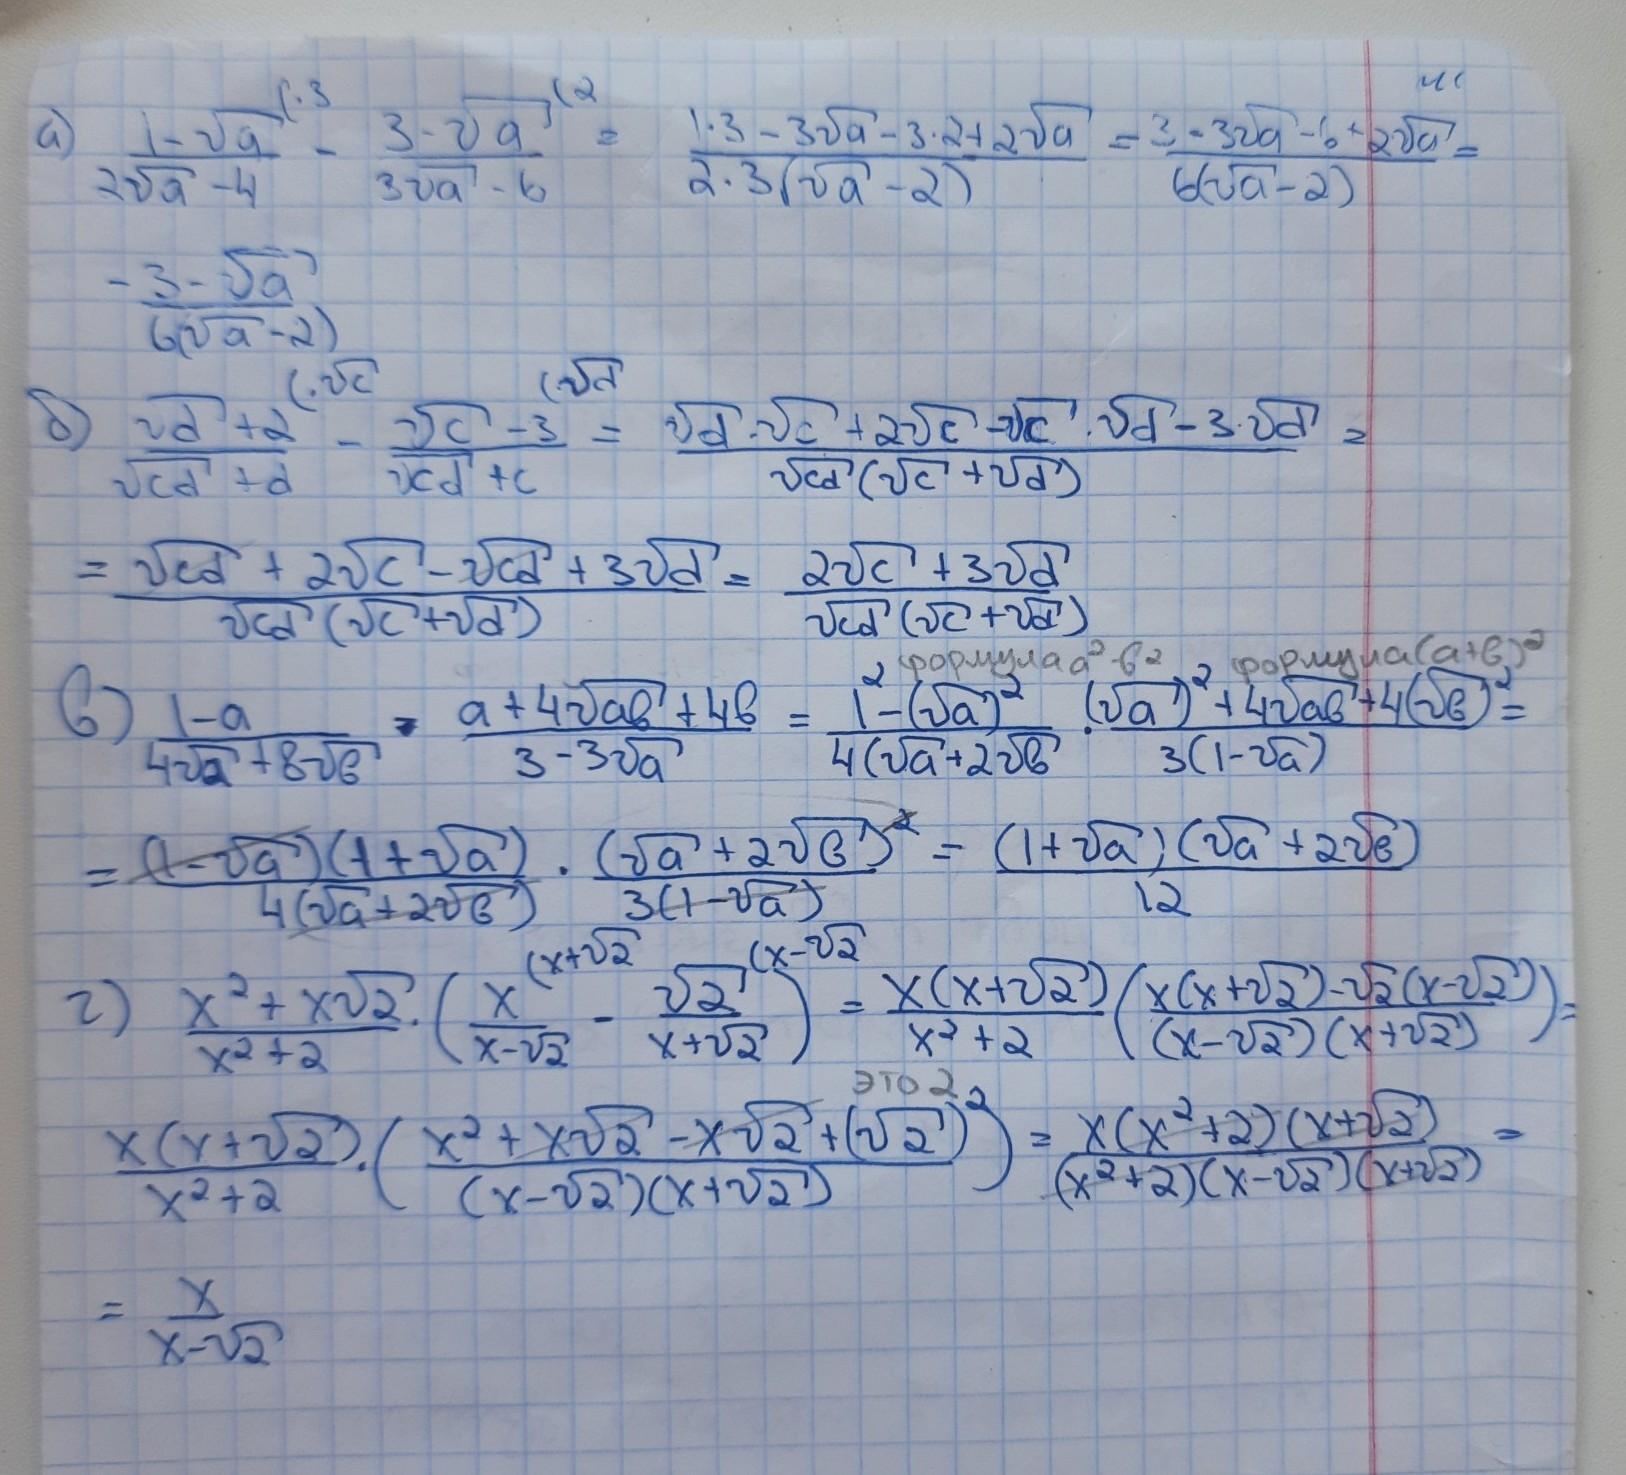 а) (1-√a)/(2√a-4) (·3 - (3-√a)/(3√a-6) (2 = (1·3-3√a-3·2+2√a)/(2·3(√a-2)) = (3-3√a-6+2√a)/(6(√a-2)) =
(-3-√a)/(6(√a-2))
б) (√d+2)/(√cd+d) (·√c - (√c-3)/(√cd+c) (√d = (√d·√c+2√c-√c·√d-3·√d)/(√cd(√c+√d)) =
= (√cd+2√c-√cd+3√d)/(√cd(√c+√d)) = (2√c+3√d)/(√cd(√c+√d))
формула a²-b² формула (a+b)²
в) (1-a)/(4√a+8√b) · (a+4√ab+4b)/(3-3√a) = (1²-(√a)²)/(4(√a+2√b) · ((√a)²+4√ab+4(√b)²)/(3(1-√a)) =
= ((1-√a)(1+√a))/(4(√a+2√b)) · (√a+2√b)²/(3(1-√a)) = ((1+√a)(√a+2√b))/12
г) (x²+x√2)/(x²+2) · (x/(x-√2) (x+√2 - √2/(x+√2) (x-√2) = (x(x+√2))/(x²+2) ((x(x+√2)-√2(x-√2))/((x-√2)(x+√2))) =
это 2
(x(x+√2))/(x²+2) · ((x²+x√2-x√2+(√2)²)/((x-√2)(x+√2))) = (x(x²+2)(x+√2))/((x²+2)(x-√2)(x+√2)) =
= x/(x-√2)